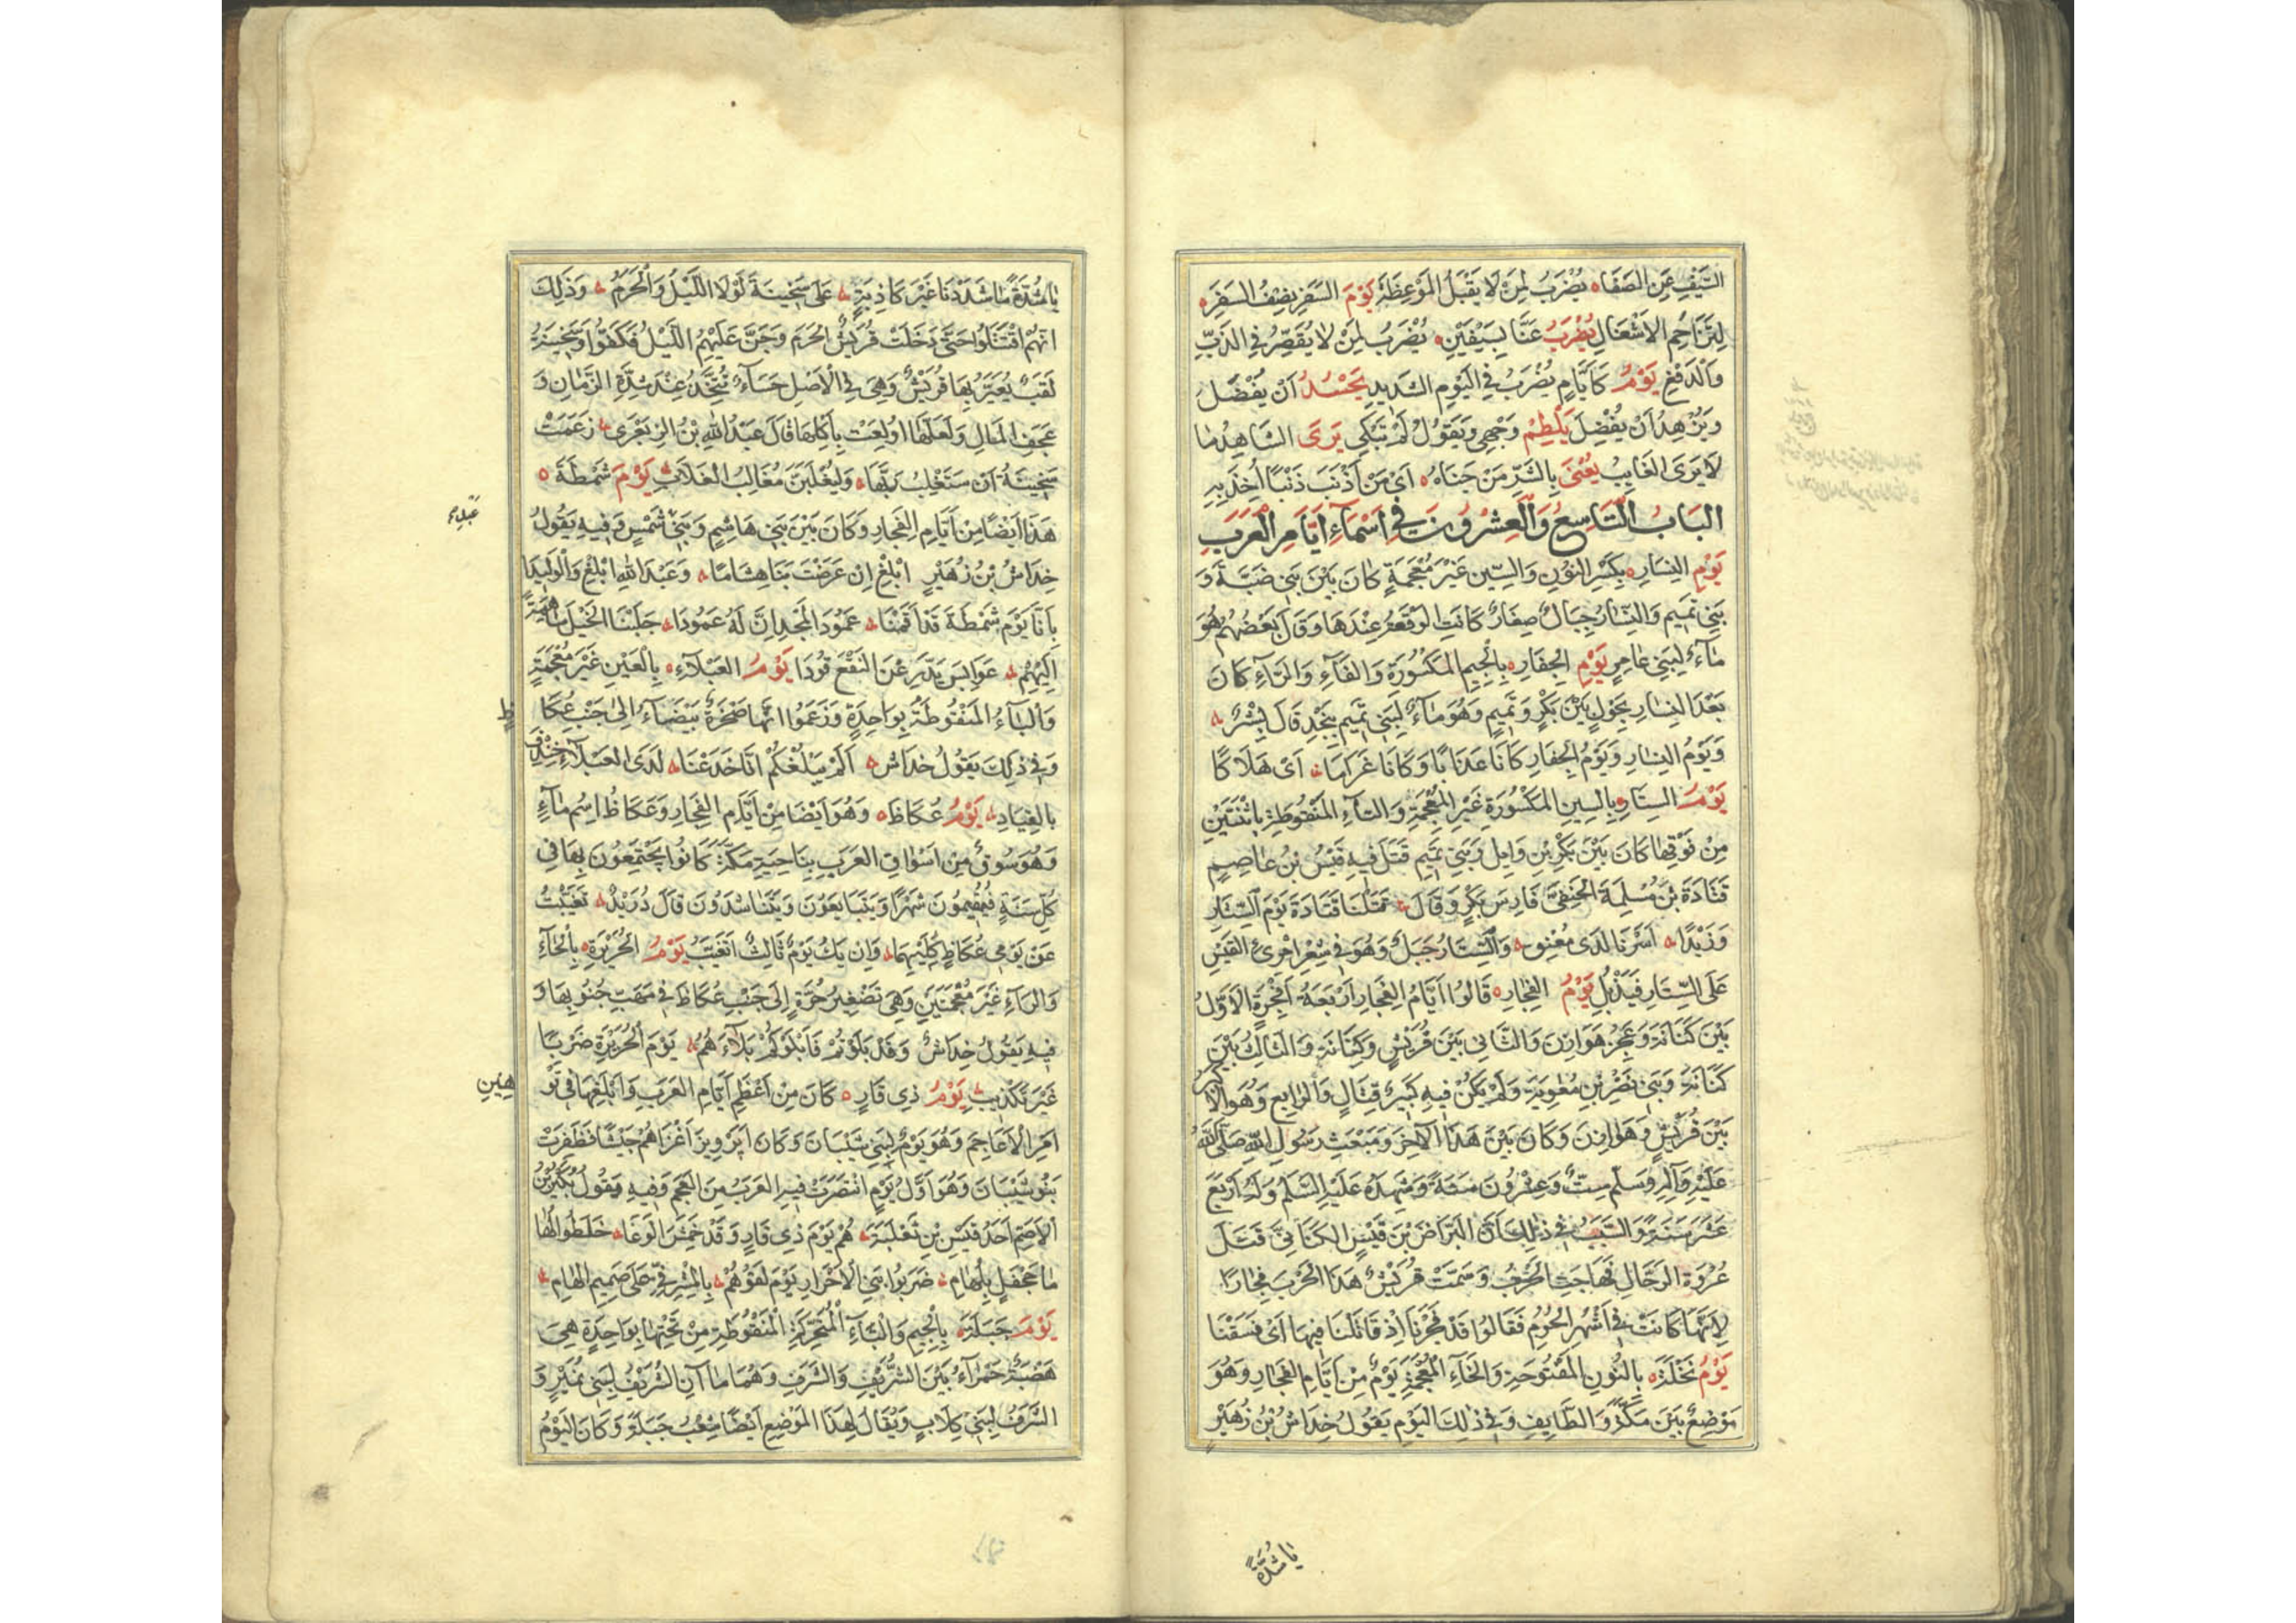 السَّيْفِ عَنِ الصَفَاه يُضْرَبُ لِمَنْ لَا يَقْبَلُ المَوْعِظَةَ يَوْمَ السَفَرِ نِصْفُ السَفَرِه
لِتَزَاحُمِ الاَشْغَالِ يُضْرَبُ عَنَّا بِسَيْفَيْنِ يُضْرَبُ لِمَنْ لَا يُقَصِّرُ فِي الذَبِّ
وَالدَفْعِ يَوْمٌ كَاَيَّامٍ يُضْرَبُ فِي اليَوْمِ الشَدِيدِ يَحْسُدُ اَنْ يُفْضَلَ
وَيَزْهَدُ اَنْ يُفْضِلَ يَلْطِمُ وَجْهِي وَيَقُولُ لَمْ تَبْكِي يَرَى الشَاهِدُ مَا
لَا يَرَى الغَايِبُ يُعْنَى بِالشَرِّ مَنْ جَنَاهُ اَيْ مَنْ اَذْنَبَ ذَنْبًا اُخِذَ بِهِ
البَابُ التَاسِعُ وَالعِشْرُونَ فِي اَسْمَآءِ اَيَّامِ العَرَبِ
يَوْمُ النِسَارِه بِكَسْرِ النُوْنِ وَالسِّينِ غَيْرَ مُعْجَمَةٍ كَانَ بَيْنَ بَنِي ضَبَّةَ وَ
بَنِي تَمِيمٍ وَالنِسَارُ جِبَالٌ صِغَارٌ كَانَتِ الوَقْعَةُ عِنْدَهَا وَقَالَ بَعْضُهُمْ هُوَ
مَآءٌ لِبَنِي عَامِرٍ يَوْمُ الجِفَارِه بِالْجِيمِ المَكْسُورَةِ وَالفَآءِ وَالرَآءِ كَانَ
بَعْدَ النِسَارِ بِحَوْلٍ بَيْنَ بَكْرٍ وَتَمِيمٍ وَهُوَ مَآءٌ لِبَنِي تَمِيمٍ بِنَجْدٍ قَالَ بِشْرٌ
وَيَوْمُ النِسَارِ وَيَوْمُ الجِفَارِ كَانَا عَذَابًا وَكَانَا غَرَامَا اَيْ هَلَاكًا
يَوْمُ السِتَارِ بِالسِينِ المَكْسُورَةِ غَيْرِ المُعْجَمَةِ وَالتَآءِ المَنْقُوطَةِ بِاثْنَتَيْنِ
مِنْ فَوْقِهَا كَانَ بَيْنَ بَكْرِ بْنِ وَايِلٍ وَبَنِي تَمِيمٍ قَتَلَ فِيهِ قَيْسُ بْنُ عَاصِمٍ
قَتَادَةَ بْنَ مُسْلِمَةَ الحَنَفِيَّ فَارِسَ بَكْرٍ وَقَالَ قَتَلْنَا قَتَادَةَ يَوْمَ السِّتَارِ
وَزَيْدًا اَسَرْنَا لَدَى مُعْنِقِ وَالسِّتَارُ جَبَلٌ وَهُوَ فِي شِعْرِ امْرِئِ القَيْسِ
عَلَى السِّتَارِ فَيَذْبُلِ يَوْمُ الفِجَارِه قَالُوا اَيَّامُ الفِجَارِ اَرْبَعَةُ اَفْجِرَةٍ الاَوَّلُ
بَيْنَ كِنَانَةَ وَعَجُزِ هَوَازِنَ وَالثَّانِي بَيْنَ قُرَيْشٍ وَكِنَانَةَ وَالثَالِثُ بَيْنَ
كِنَانَةَ وَبَنِي نَصْرِ بْنِ مُعٰوِيَةَ وَلَمْ يَكُنْ فِيهِ كَبِيرُ قِتَالٍ وَالرَابِعُ وَهُوَ الاَكْبَرُ
بَيْنَ قُرَيْشٍ وَهَوَازِنَ وَكَانَ بَيْنَ هَذَا الآخِرِ وَمَبْعَثِ رَسُولِ اللّٰهِ صَلَّى اللّٰهُ
عَلَيْهِ وَآلِهِ وَسَلَّمَ سِتٌّ وَعِشْرُونَ سَنَةً وَشَهِدَهُ عَلَيْهِ السَّلَمُ وَلَهُ اَرْبَعَ
عَشْرَ سَنَةً وَالسَّبَبُ فِي ذٰلِكَ اَنَّ البَرَّاضَ بْنَ قَيْسٍ الكِنَانِيَّ قَتَلَ
عُرْوَةَ الرَحَّالَ فَهَاجَتِ الحَرْبُ وَسَمَّتْ قُرَيْشٌ هَذَا الحَرْبَ فِجَارًا
لِاَنَّهَا كَانَتْ فِي اَشْهُرِ الحُرُمِ فَقَالُوا قَدْ فَجَرْنَا اِذْ قَاتَلْنَا فِيهَا اَيْ فَسَقْنَا
يَوْمُ نَخْلَةَه بِالنُّونِ المَفْتُوحَةِ وَالخَآءِ المُعْجَمَةِ يَوْمٌ مِنْ اَيَّامِ الفِجَارِ وَهُوَ
مَوْضِعٌ بَيْنَ مَكَّةَ وَالطَايِفِ وَفِي ذٰلِكَ اليَوْمِ يَقُولُ خِدَاشُ بْنُ زُهَيْرٍ
يَا شِدَّةً
يَا شِدَّةً مَا شَدَدْنَا غَيْرَ كَاذِبَةٍ عَلَى سَخِينَةَ لَوْلَا اللَّيْلُ وَالْحَرَمُ وَذَلِكَ
اَنَّهُمُ اقْتَتَلُوا حَتَّى دَخَلَتْ قُرَيْشٌ الحَرَمَ وَجَنَّ عَلَيْهِمُ اللَّيْلُ فَكَفُّوا وَسَخِينَةُ
لَقَبٌ يُعَيَّرُ بِهَا قُرَيْشٌ وَهِيَ فِي الاَصْلِ حَسَآءٌ تُتَّخَذُ عِنْدَ شِدَّةِ الزَّمَانِ وَ
عَجَفِ المَالِ وَلَعَلَّهَا اُولِعَتْ بِاَكْلِهَا قَالَ عَبْدُ اللّٰهِ بْنُ الزِبَعْرَى زَعَمَتْ
سَخِينَةُ اَنْ سَتَغْلِبُ رَبَّهَا وَلَيُغْلَبَنَّ مُغَالِبُ الغَلَّابِ يَوْمُ شَمْطَةَ ه
هَذَا اَيْضًا مِنْ اَيَّامِ الفِجَارِ وَكَانَ بَيْنَ بَنِي هَاشِمٍ وَبَنِي شَمْسٍ وَفِيهِ يَقُولُ
عَبْدِ
خِدَاشُ بْنُ زُهَيْرٍ اَبْلِغْ اِنْ عَرَضْتَ بِنَا هِشَامًا وَعَبْدَ اللّٰهِ اَبْلِغْ وَالْوَلِيدَا
بِاَنَّا يَوْمَ شَمْطَةَ قَدْ اَقَمْنَا عَمُودَ المَجْدِ اِنَّ لَهُ عَمُودَا جَلَبْنَا الخَيْلَ سَاهِمَةً
اِلَيْهِمْ عَوَابِسَ يَدَّرِعْنَ النَقْعَ قُودَا يَوْمُ العَبْلَآءِه بِالعَيْنِ غَيْرَ مُعْجَمَةٍ
وَالبَآءِ المَنْقُوطَةِ بِوَاحِدَةٍ وَزَعَمُوا اَنَّهَا صَخْرَةٌ بَيْضَآءُ اِلَى جَنْبِ عُكَا
ظٍ
وَفِي ذٰلِكَ يَقُولُ خِدَاشٌ اَلَمْ يَبْلُغْكُمْ اَنَّا جَدَعْنَا لَدَى العَبْلَآءِ خِنْدِفَ
بِالقِيَادِ يَوْمُ عُكَاظَ ه وَهُوَ اَيْضًا مِنْ اَيَّامِ الفِجَارِ وَعُكَاظُ اِسْمُ مَآءٍ
وَهُوَ سُوقٌ مِنْ اَسْوَاقِ العَرَبِ بِنَاحِيَةِ مَكَّةَ كَانُوا يَجْتَمِعُونَ بِهَا فِي
كُلِّ سَنَةٍ فَيُقِيمُونَ شَهْرًا وَيَتَبَايَعُونَ وَيَتَنَاشَدُونَ قَالَ دُرَيْدٌ تَغَيَّبْتُ
عَنْ يَوْمَيْ عُكَاظٍ كِلَيْهِمَا وَاِنْ يَكُ يَوْمٌ ثَالِثٌ اَتَغَيَّبُ يَوْمُ الحُرَيْرَةِ بِالْحَآءِ
وَالرَآءِ غَيْرَ مُعْجَمَتَيْنِ وَهِيَ تَصْغِيرُ حَرَّةٍ اِلَى جَنْبِ عُكَاظَ فِي مَهَبِّ جَنُوبِهَا وَ
فِيهِ يَقُولُ خِدَاشٌ وَقَدْ بَلَوْتُمْ فَاَبْلَوْكُمْ بَلَآءَهُمُ يَوْمَ الحُرَيْرَةِ ضَرْبًا
غَيْرَ تَكْذِيبِ يَوْمُ ذِي قَارٍ ه كَانَ مِنْ اَعْظَمِ اَيَّامِ العَرَبِ وَاَبْلَغِهَا فِي تَوْ
هِينِ
اَمْرِ الاَعَاجِمِ وَهُوَ يَوْمٌ لِبَنِي شَيْبَانَ وَكَانَ اَبَرْوِيزُ اَغْزَاهُمْ جَيْشًا فَظَفِرَتْ
بَنُو شَيْبَانَ وَهُوَ اَوَّلُ يَوْمٍ انْتَصَرَتْ فِيهِ العَرَبُ مِنَ العَجَمِ وَفِيهِ يَقُولُ بُكَيْرُ بْنُ
الاَصَمِّ اَحَدُ قَيْسِ بْنِ ثَعْلَبَةَ هُمْ يَوْمَ ذِي قَارٍ وَقَدْ حَمِسَ الوَغَا خَلَطُوا لُهَا
مًا جَحْفَلًا بِلُهَامِ ضَرَبُوا بَنِي الاَحْرَارِ يَوْمَ لَقُوهُمُ بِالْمَشْرَفِيِّ عَلَى صَمِيمِ الهَامِ
يَوْمُ جَبَلَةَ بِالْجِيمِ وَالْبَآءِ الْمُتَحَرِّكَةِ الْمَنْقُوطَةِ مِنْ تَحْتِهَا بِوَاحِدَةٍ هِيَ
هَضْبَةٌ حَمْرَآءُ بَيْنَ الشُّرَيْفِ وَالشَرَفِ وَهُمَا مَاآنِ الشُرَيْفُ لِبَنِي نُمَيْرٍ وَ
الشَّرَفُ لِبَنِي كِلَابٍ وَيُقَالُ لِهَذَا المَوْضِعِ اَيْضًا شِعْبُ جَبَلَةَ وَكَانَ اليَوْمُ